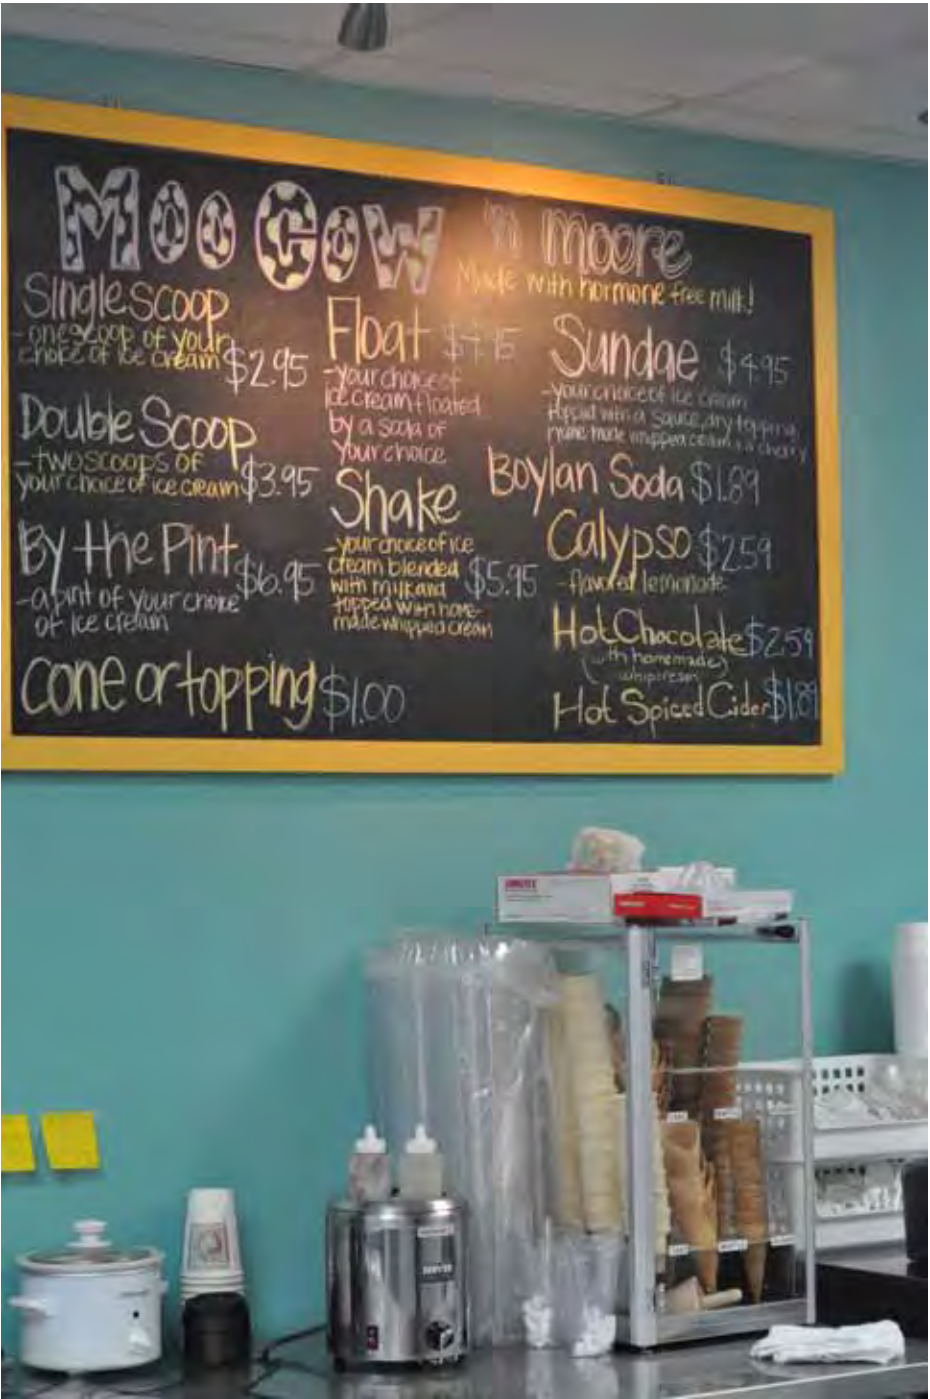 Moo Cow 'n moore
Made with hormone free milk!
Single scoop
- one scoop of your
choice of ice cream $2.95
Double Scoop
- two scoops of
your choice of ice cream $3.95
By the Pint $6.95
- a pint of your choice
of ice cream
cone or topping $1.00
Float
- your choice of
ice cream floated
by a soda of
your choice
Shake
- your choice of ice
cream blended $5.95
with milk and
topped with home-
made whipped cream
Sundae $4.95
- your choice of ice cream
topped with a sauce, dry topping,
home made whipped cream, & a cherry
Boylan Soda $1.89
Calypso $2.59
- flavored lemonade
Hot Chocolate $2.59
(with homemade)
whipcream
Hot Spiced Cider $1.89
SERVER